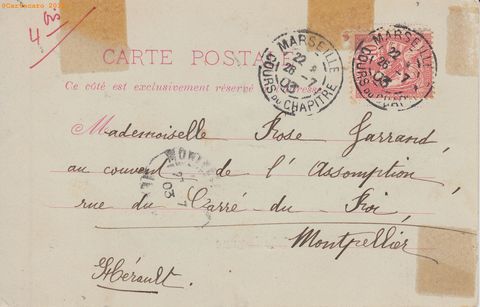 @Cartacaro
4 bis
CARTE POSTALE
Ce côté est exclusivement réservé
MARSEILLE
22
26 -7
03
COURS DU CHAPITRE
MARSEILLE
22
26 -7
03
COURS DU CHAP
Mademoiselle Rose Garrand,
au couvent de l'Assomption,
rue du Carré du Roi,
Montpellier
Hérault.
MONT
03